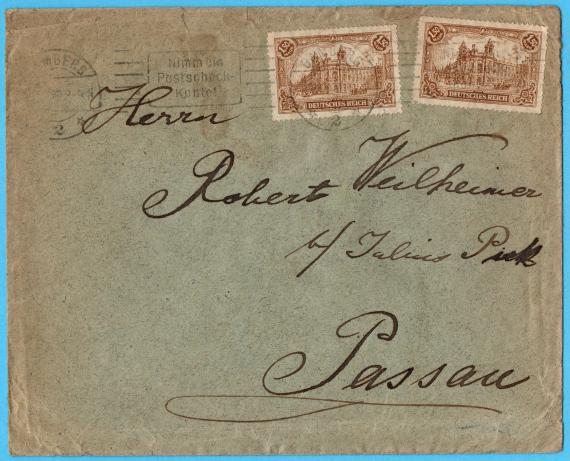 Nimm ein
Postscheck-
Konto!
2
2
DEUTSCHES REICH
DEUTSCHES REICH
Herrn
Robert Weilheimer
b/ Julius Pick
Passau